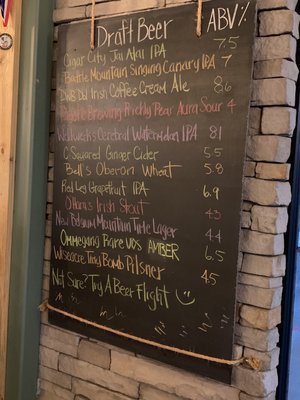 Draft Beer ABV%
Cigar City Jai Alai IPA 7.5
Battle Mountain Singing Canary IPA 7
Irish Coffee Cream Ale 8.6
Brewing Prickly Pear Aura Sour 4
Cerebral Watermelon IPA 8.1
C Squared Ginger Cider 5.5
Bell's Oberon Wheat 5.8
Red Leg Grapefruit IPA 6.9
O'Haras Irish Stout 4.3
New Belgium Mountain Time Lager 4.4
Ommegang Rare VOS AMBER 6.5
Wiseacre Tiny Bomb Pilsner 4.5
Not Sure? Try A Beer Flight